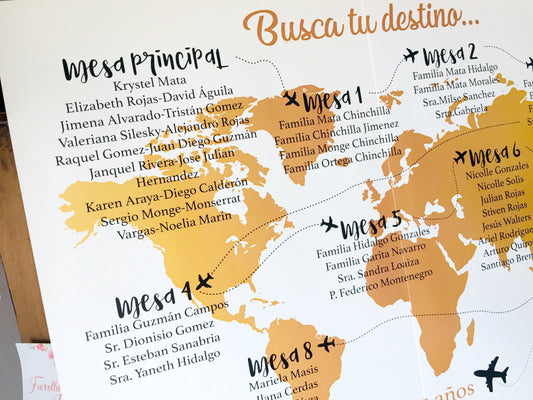 Busca tu destino...
Mesa principal
Krystel Mata
Elizabeth Rojas-David Águila
Jimena Alvarado-Tristán Gomez
Valeriana Silesky-Alejandro Rojas
Raquel Gomez-Juan Diego Guzmán
Janquel Rivera-Jose Julian
Hernandez
Karen Araya-Diego Calderón
Sergio Monge-Monserrat
Vargas-Noelia Marin
Mesa 1
Familia Mata Chinchilla
Familia Chinchilla Jimenez
Familia Monge Chinchilla
Familia Ortega Chinchilla
Mesa 2
Familia Mata Hidalgo
Familia Mata Morales
Sra.Milse Sanchez
Srta.Gabriela
Mesa 4
Familia Guzmán Campos
Sr. Dionisio Gomez
Sr. Esteban Sanabria
Sra. Yaneth Hidalgo
Mesa 5
Familia Hidalgo Gonzales
Familia Garita Navarro
Sra. Sandra Loaiza
P. Federico Montenegro
Mesa 6
Nicolle Gonzales
Nicolle Solis
Julian Rojas
Stiven Rojas
Jesús Walters
Ariel Rodrigue
Arturo Quiro
Santiago Bren
Mesa 8
Mariela Masis
Cerdas
años
Fiorella